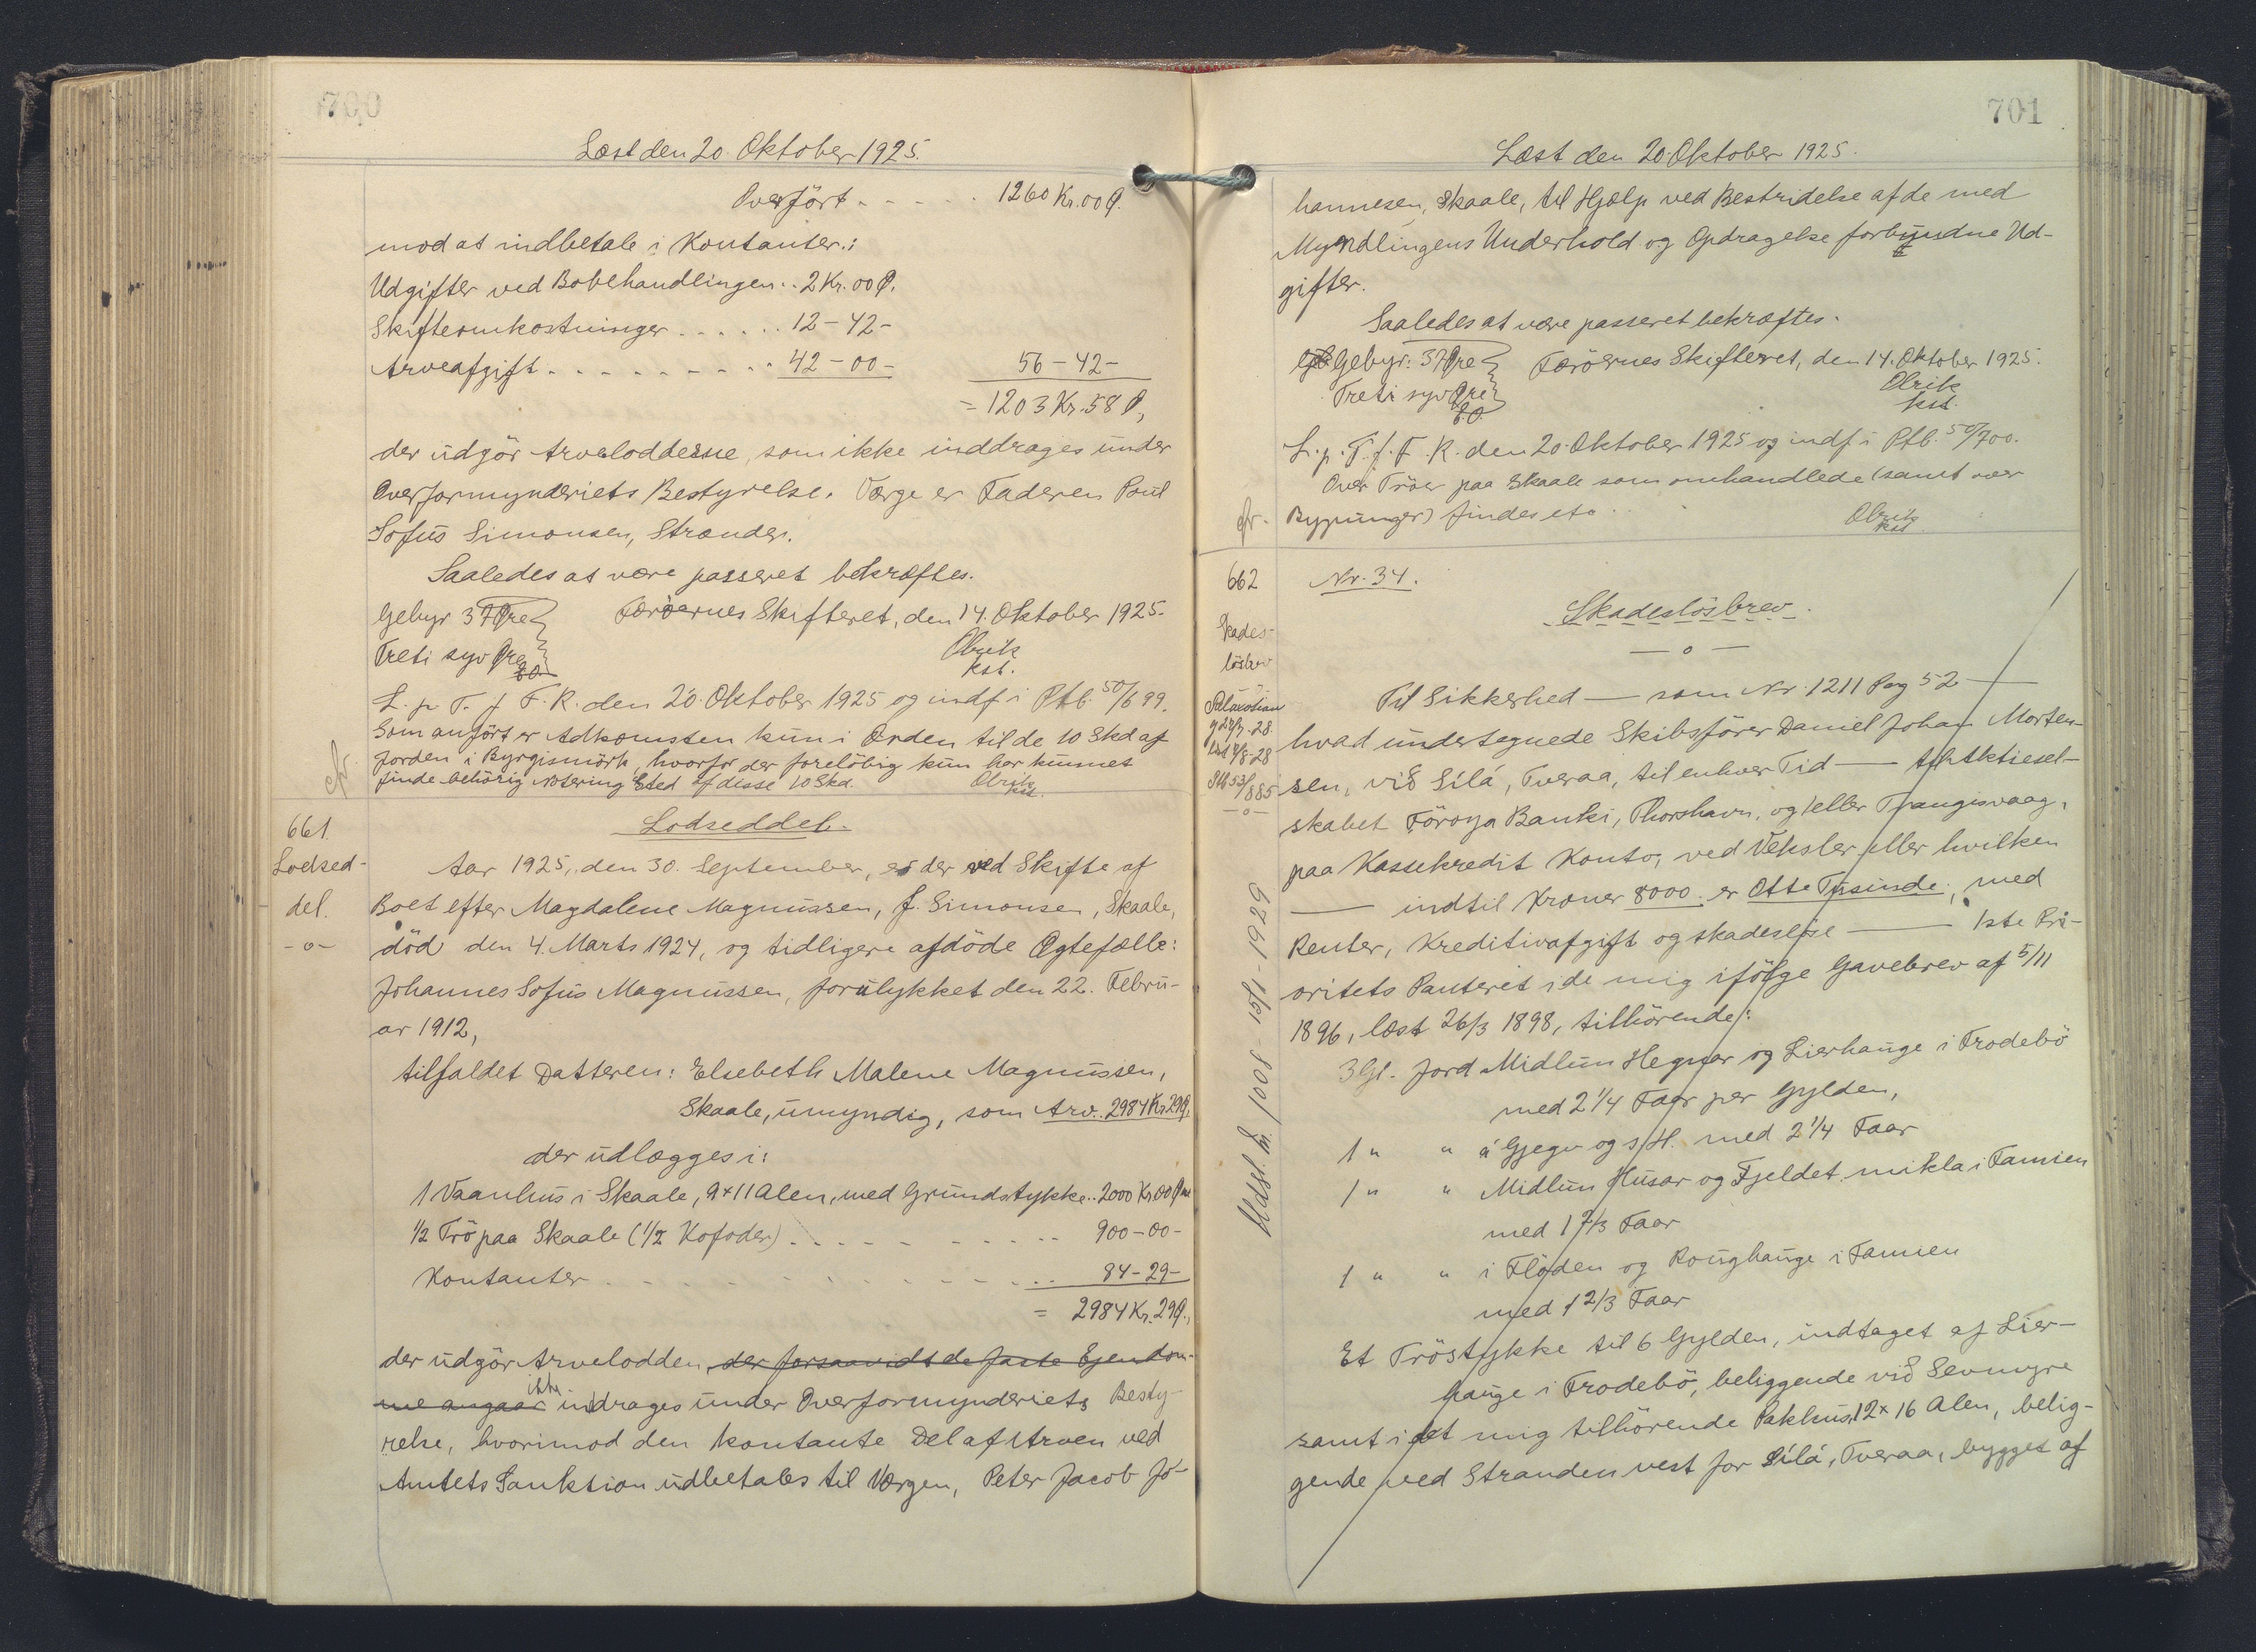 700
Læst den 20 Oktober 1925.
Overført - - - - - 1260 Kr. 00 Ø.
mod at indbetale i Kontanter.:
Udgifter ved Bobehandlingen .. 2 Kr. 00 Ø.
Skifteomkostninger . . . . . . 12 - 42 -
Arveafgift . . . . . . . . . 42 - 00 - 56 - 42 -
= 1203 Kr. 58 Ø,
der udgör Arvelodderne, som ikke inddrages under
Overformynderiets Bestyrelse. Værge er Faderen Poul
Sofus Simonsen, Strænder.
Saaledes at være passeret bekræftes.
Gebyr 37 Øre Færöernes Skifteret, den 14. Oktober 1925.
Treti syv Øre Olrik
EO. kst.
L. p. T. f. F. R. den 20. Oktober 1925 og indf i Ptb. 50/699.
Som anfört er Adkomsten kun i Orden til de 10 Skd af
Jorden i Byrgismörk, hvorfor der forelöbig kun har kunnet
finde behörig Notering Sted af disse 10 Skd. Olrik
kst.
cfr.
661 Lodseddel.
Lodsed-
del.
-o-
Aar 1925, den 30. September, er der ved Skifte af
Boet efter Magdalene Magnussen, f. Simonsen, Skaale,
död den 4. Marts 1924, og tidligere afdöde Ægtefælle:
Johannes Sofus Magnussen, forulykket den 22. Febru-
ar 1912,
tilfaldet Datteren: Elsebeth Malene Magnussen,
Skaale, umyndig, som Arv.. 2984 Kr. 29 Ø.
der udlægges i:
1 Vaanhus i Skaale, 9 x 11 Alen, med Grundstykke.. 2000 Kr. 00 Øre
1/2 Trö paa Skaale (1/2 Kofoder) . . . . . . 900 - 00 -
Kontanter . . . . . . . . . 84 - 29 -
= 2984 Kr. 29 Ø.,
der udgör Arvelodden, der forsaavidt de faste Ejendom-
me angaar ikke inddrages under Overformynderiets Besty-
relse, hvorimod den kontante Del af Arven ved
Amtets Sanktion udbetales til Værgen, Peter Jacob Jo-
701
Læst den 20. Oktober 1925.
hannesen, Skaale, til Hjælp ved Bestridelse af de med
Myndlingens Underhold og Opdragelse forbundne Ud-
gifter.
Saaledes at være passeret bekræftes.
Gebyr: 37 Øre Færöernes Skifteret, den 14. Oktober 1925.
Treti syv Øre Olrik
EO kst.
L. p. T. f. F. R. den 20. Oktober 1925 og indf i Ptb. 50/700.
Over Tröer paa Skaale som omhandlede (samt over
cfr. Bygninger) findes etc. . Olrik
kst.
662 Nr. 34.
Skadeslösbrev.
- o -
Skades-
lösbrev
Til Sikkerhed — som Nr. 1211 Pag 52 —
hvad undertegnede Skibsförer Daniel Johan Morten-
sen, við Sílá, Tveraa, til enhver Tid — Aktiesel-
skabet Föroya Banki, Thorshavn, og/eller Trangisvaag,
paa Kassekredit Konto, ved Veksler eller hvilken
— indtil Kroner 8000. er Otte Tusinde, med
Renter, Kreditivafgift og skadeslöse — 1ste Pri-
oritets Panteret i de mig ifölge Gavebrev af 5/11
1896, læst 26/3 1898, tilhörende:
3 Gl. Jord Midlum Hegnar og Lierhauge i Frodebö
med 2 1/4 Faar per Gylden,
1 " " á Gjegv og s. H. med 2 1/4 Faar
1 " " Midlum Husar og Fjeldet mikla i Famien
med 1 2/3 Faar
1 " " i Flöden og Roughauge i Famien
med 1 2/3 Faar
Et Tröstykke til 6 Gylden, indtaget af Lier-
hauge i Frodebö, beliggende við Sevmyre
samt i det mig tilhörende Pakhus, 12 x 16 Alen, belig-
gende ved Stranden vest for Sílá, Tveraa, bygget af